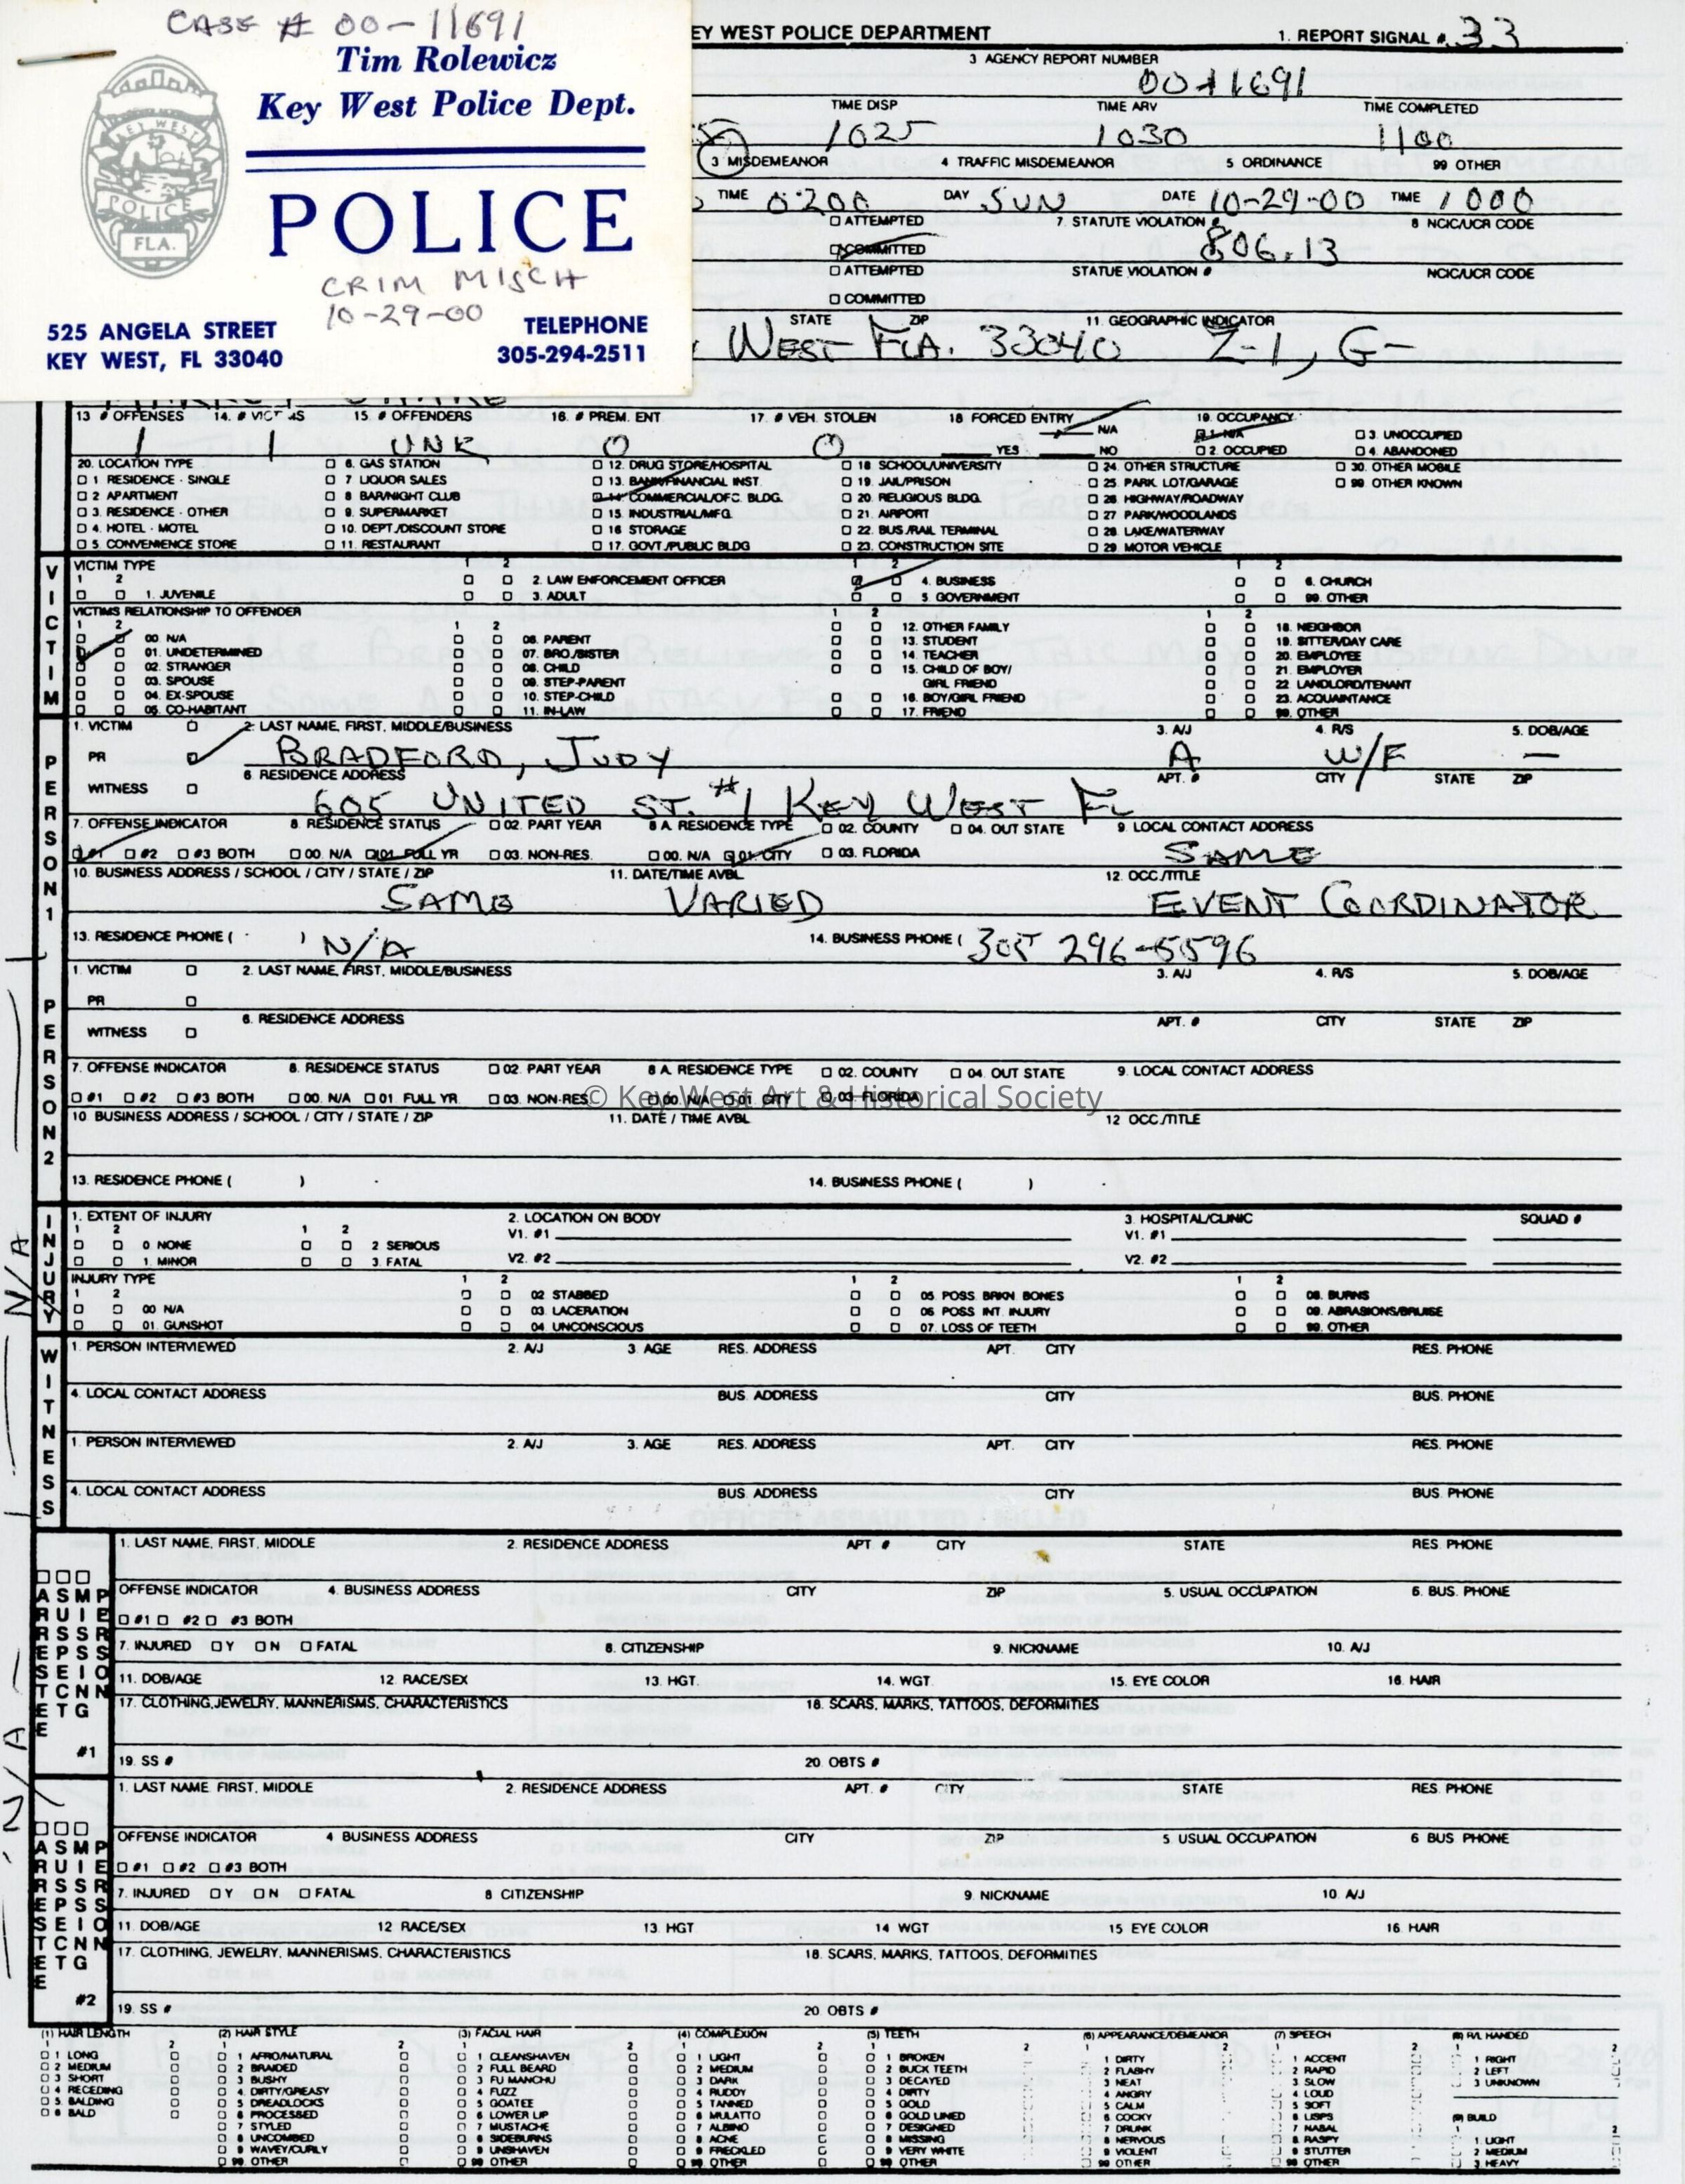 CASE # 00-11691
Tim Rolewicz
Key West Police Dept.
KEY WEST
POLICE
FLA.
POLICE
CRIM MISCH
10-29-00
525 ANGELA STREET
KEY WEST, FL 33040
TELEPHONE
305-294-2511
EY WEST POLICE DEPARTMENT 1. REPORT SIGNAL # 33
3 AGENCY REPORT NUMBER
00-11691
TIME DISP TIME ARV TIME COMPLETED
1025 1030 1100
3 MISDEMEANOR 4 TRAFFIC MISDEMEANOR 5 ORDINANCE 99 OTHER
TIME 0200 DAY SUN DATE 10-29-00 TIME 1000
ATTEMPTED 7. STATUTE VIOLATION # 806.13 8 NCIC/UCR CODE
COMMITTED
ATTEMPTED STATUE VIOLATION # NCIC/UCR CODE
COMMITTED
STATE ZIP 11. GEOGRAPHIC INDICATOR
WEST FLA. 33040 Z-1, G-
13 # OFFENSES 14. # VICTIMS 15. # OFFENDERS 16. # PREM. ENT. 17. # VEH. STOLEN 18 FORCED ENTRY N/A 19. OCCUPANCY
1 1 UNK 0 0 YES NO 1. N/A 2. OCCUPIED 3. UNOCCUPIED 4. ABANDONED
20. LOCATION TYPE 6. GAS STATION 12. DRUG STORE/HOSPITAL 18 SCHOOL/UNIVERSITY 24. OTHER STRUCTURE 30. OTHER MOBILE
1 RESIDENCE - SINGLE 7 LIQUOR SALES 13. BANK/FINANCIAL INST. 19. JAIL/PRISON 25 PARK. LOT/GARAGE 99 OTHER KNOWN
2 APARTMENT 8 BAR/NIGHT CLUB 14 COMMERCIAL/OFC. BLDG. 20. RELIGIOUS BLDG. 26 HIGHWAY/ROADWAY
3. RESIDENCE - OTHER 9. SUPERMARKET 15 INDUSTRIAL/MFG. 21. AIRPORT 27 PARK/WOODLANDS
4. HOTEL - MOTEL 10. DEPT./DISCOUNT STORE 16 STORAGE 22. BUS./RAIL TERMINAL 28. LAKE/WATERWAY
5. CONVENIENCE STORE 11. RESTAURANT 17. GOVT./PUBLIC BLDG 23. CONSTRUCTION SITE 29 MOTOR VEHICLE
VICTIM
VICTIM TYPE 1 2
1 2 2. LAW ENFORCEMENT OFFICER 4. BUSINESS 6. CHURCH
1. JUVENILE 3. ADULT 5 GOVERNMENT 99. OTHER
VICTIMS RELATIONSHIP TO OFFENDER
1 2 1 2 1 2 1 2
00. N/A 06. PARENT 12. OTHER FAMILY 18. NEIGHBOR
01. UNDETERMINED 07. BRO./SISTER 13. STUDENT 19. SITTER/DAY CARE
02. STRANGER 08. CHILD 14. TEACHER 20. EMPLOYEE
03. SPOUSE 09. STEP-PARENT 15. CHILD OF BOY/ GIRL FRIEND 21. EMPLOYER
04. EX-SPOUSE 10. STEP-CHILD 16. BOY/GIRL FRIEND 22. LANDLORD/TENANT
05. CO-HABITANT 11. IN-LAW 17. FRIEND 23. ACQUAINTANCE
99. OTHER
PERSON 1
1. VICTIM 2. LAST NAME, FIRST, MIDDLE/BUSINESS 3. A/J 4. R/S 5. DOB/AGE
PR BRADFORD, JUDY A W/F —
WITNESS 6. RESIDENCE ADDRESS APT. # CITY STATE ZIP
605 UNITED ST. #1 KEY WEST FL
7. OFFENSE INDICATOR 8. RESIDENCE STATUS 02. PART YEAR 8 A. RESIDENCE TYPE 02. COUNTY 04. OUT STATE 9. LOCAL CONTACT ADDRESS
#1 #2 #3 BOTH 00. N/A 01. FULL YR 03. NON-RES. 00. N/A 01. CITY 03. FLORIDA SAME
10. BUSINESS ADDRESS / SCHOOL / CITY / STATE / ZIP 11. DATE/TIME AVBL 12. OCC./TITLE
SAME VARIED EVENT COORDINATOR
13. RESIDENCE PHONE ( ) N/A 14. BUSINESS PHONE ( 305 296-5596
PERSON 2
1. VICTIM 2. LAST NAME, FIRST, MIDDLE/BUSINESS 3. A/J 4. R/S 5. DOB/AGE
PR
WITNESS 6. RESIDENCE ADDRESS APT. # CITY STATE ZIP
7. OFFENSE INDICATOR 8. RESIDENCE STATUS 02. PART YEAR 8 A. RESIDENCE TYPE 02. COUNTY 04. OUT STATE 9. LOCAL CONTACT ADDRESS
#1 #2 #3 BOTH 00. N/A 01. FULL YR. 03. NON-RES. 00. N/A 01. CITY 03. FLORIDA
© Key West Art & Historical Society
10 BUSINESS ADDRESS / SCHOOL / CITY / STATE / ZIP 11. DATE / TIME AVBL 12 OCC./TITLE
13. RESIDENCE PHONE ( ) 14. BUSINESS PHONE ( )
N/A
INJURY
1. EXTENT OF INJURY 2. LOCATION ON BODY 3. HOSPITAL/CLINIC SQUAD #
1 2 1 2 V1. #1 V1. #1
0 NONE 2 SERIOUS
1. MINOR 3. FATAL V2. #2 V2. #2
INJURY TYPE 1 2 1 2 1 2
1 2 02 STABBED 05 POSS. BRKN. BONES 08. BURNS
00 N/A 03. LACERATION 06 POSS INT. INJURY 09. ABRASIONS/BRUISE
01. GUNSHOT 04. UNCONSCIOUS 07. LOSS OF TEETH 99. OTHER
WITNESS
1. PERSON INTERVIEWED 2. A/J 3. AGE RES. ADDRESS APT. CITY RES. PHONE
4. LOCAL CONTACT ADDRESS BUS. ADDRESS CITY BUS. PHONE
1. PERSON INTERVIEWED 2. A/J 3. AGE RES. ADDRESS APT. CITY RES. PHONE
4. LOCAL CONTACT ADDRESS BUS. ADDRESS CITY BUS. PHONE
ARRESTEE SUSPECT MISSING PERSON #1
1. LAST NAME, FIRST, MIDDLE 2. RESIDENCE ADDRESS APT # CITY STATE RES. PHONE
OFFENSE INDICATOR 4. BUSINESS ADDRESS CITY ZIP 5. USUAL OCCUPATION 6. BUS. PHONE
#1 #2 #3 BOTH
7. INJURED Y N FATAL 8. CITIZENSHIP 9. NICKNAME 10. A/J
11. DOB/AGE 12. RACE/SEX 13. HGT. 14. WGT. 15. EYE COLOR 16. HAIR
17. CLOTHING, JEWELRY, MANNERISMS, CHARACTERISTICS 18. SCARS, MARKS, TATTOOS, DEFORMITIES
19. SS # 20. OBTS #
N/A
ARRESTEE SUSPECT MISSING PERSON #2
1. LAST NAME, FIRST, MIDDLE 2. RESIDENCE ADDRESS APT. # CITY STATE RES. PHONE
OFFENSE INDICATOR 4 BUSINESS ADDRESS CITY ZIP 5. USUAL OCCUPATION 6 BUS PHONE
#1 #2 #3 BOTH
7. INJURED Y N FATAL 8 CITIZENSHIP 9. NICKNAME 10. A/J
11. DOB/AGE 12 RACE/SEX 13. HGT 14 WGT 15 EYE COLOR 16. HAIR
17. CLOTHING, JEWELRY, MANNERISMS, CHARACTERISTICS 18. SCARS, MARKS, TATTOOS, DEFORMITIES
19. SS # 20. OBTS #
(1) HAIR LENGTH (2) HAIR STYLE (3) FACIAL HAIR (4) COMPLEXION (5) TEETH (6) APPEARANCE/DEMEANOR (7) SPEECH (8) R/L HANDED
1 LONG 1 AFRO/NATURAL 1 CLEANSHAVEN 1 LIGHT 1 BROKEN 1 DIRTY 1 ACCENT 1 RIGHT
2 MEDIUM 2 BRAIDED 2 FULL BEARD 2 MEDIUM 2 BUCK TEETH 2 FLASHY 2 RAPID 2 LEFT
3 SHORT 3 BUSHY 3 FU MANCHU 3 DARK 3 DECAYED 3 NEAT 3 SLOW 3 UNKNOWN
4 RECEDING 4. DIRTY/GREASY 4 FUZZ 4 RUDDY 4 DIRTY 4 ANGRY 4 LOUD
5. BALDING 5 DREADLOCKS 5 GOATEE 5 TANNED 5 GOLD 5 CALM 5 SOFT
6 BALD 6 PROCESSED 6 LOWER LIP 6 MULATTO 6 GOLD LINED 6 COCKY 6 LISPS (9) BUILD
7 STYLED 7 MUSTACHE 7 ALBINO 7 DESIGNED 7 DRUNK 7 NASAL
8 UNCOMBED 8 SIDEBURNS 8 ACNE 8 MISSING 8 NERVOUS 8 RASPY 1 LIGHT
9 WAVEY/CURLY 9 UNSHAVEN 9 FRECKLED 9 VERY WHITE 9 VIOLENT 9 STUTTER 2 MEDIUM
99. OTHER 99 OTHER 99. OTHER 99. OTHER 99 OTHER 99 OTHER 3 HEAVY